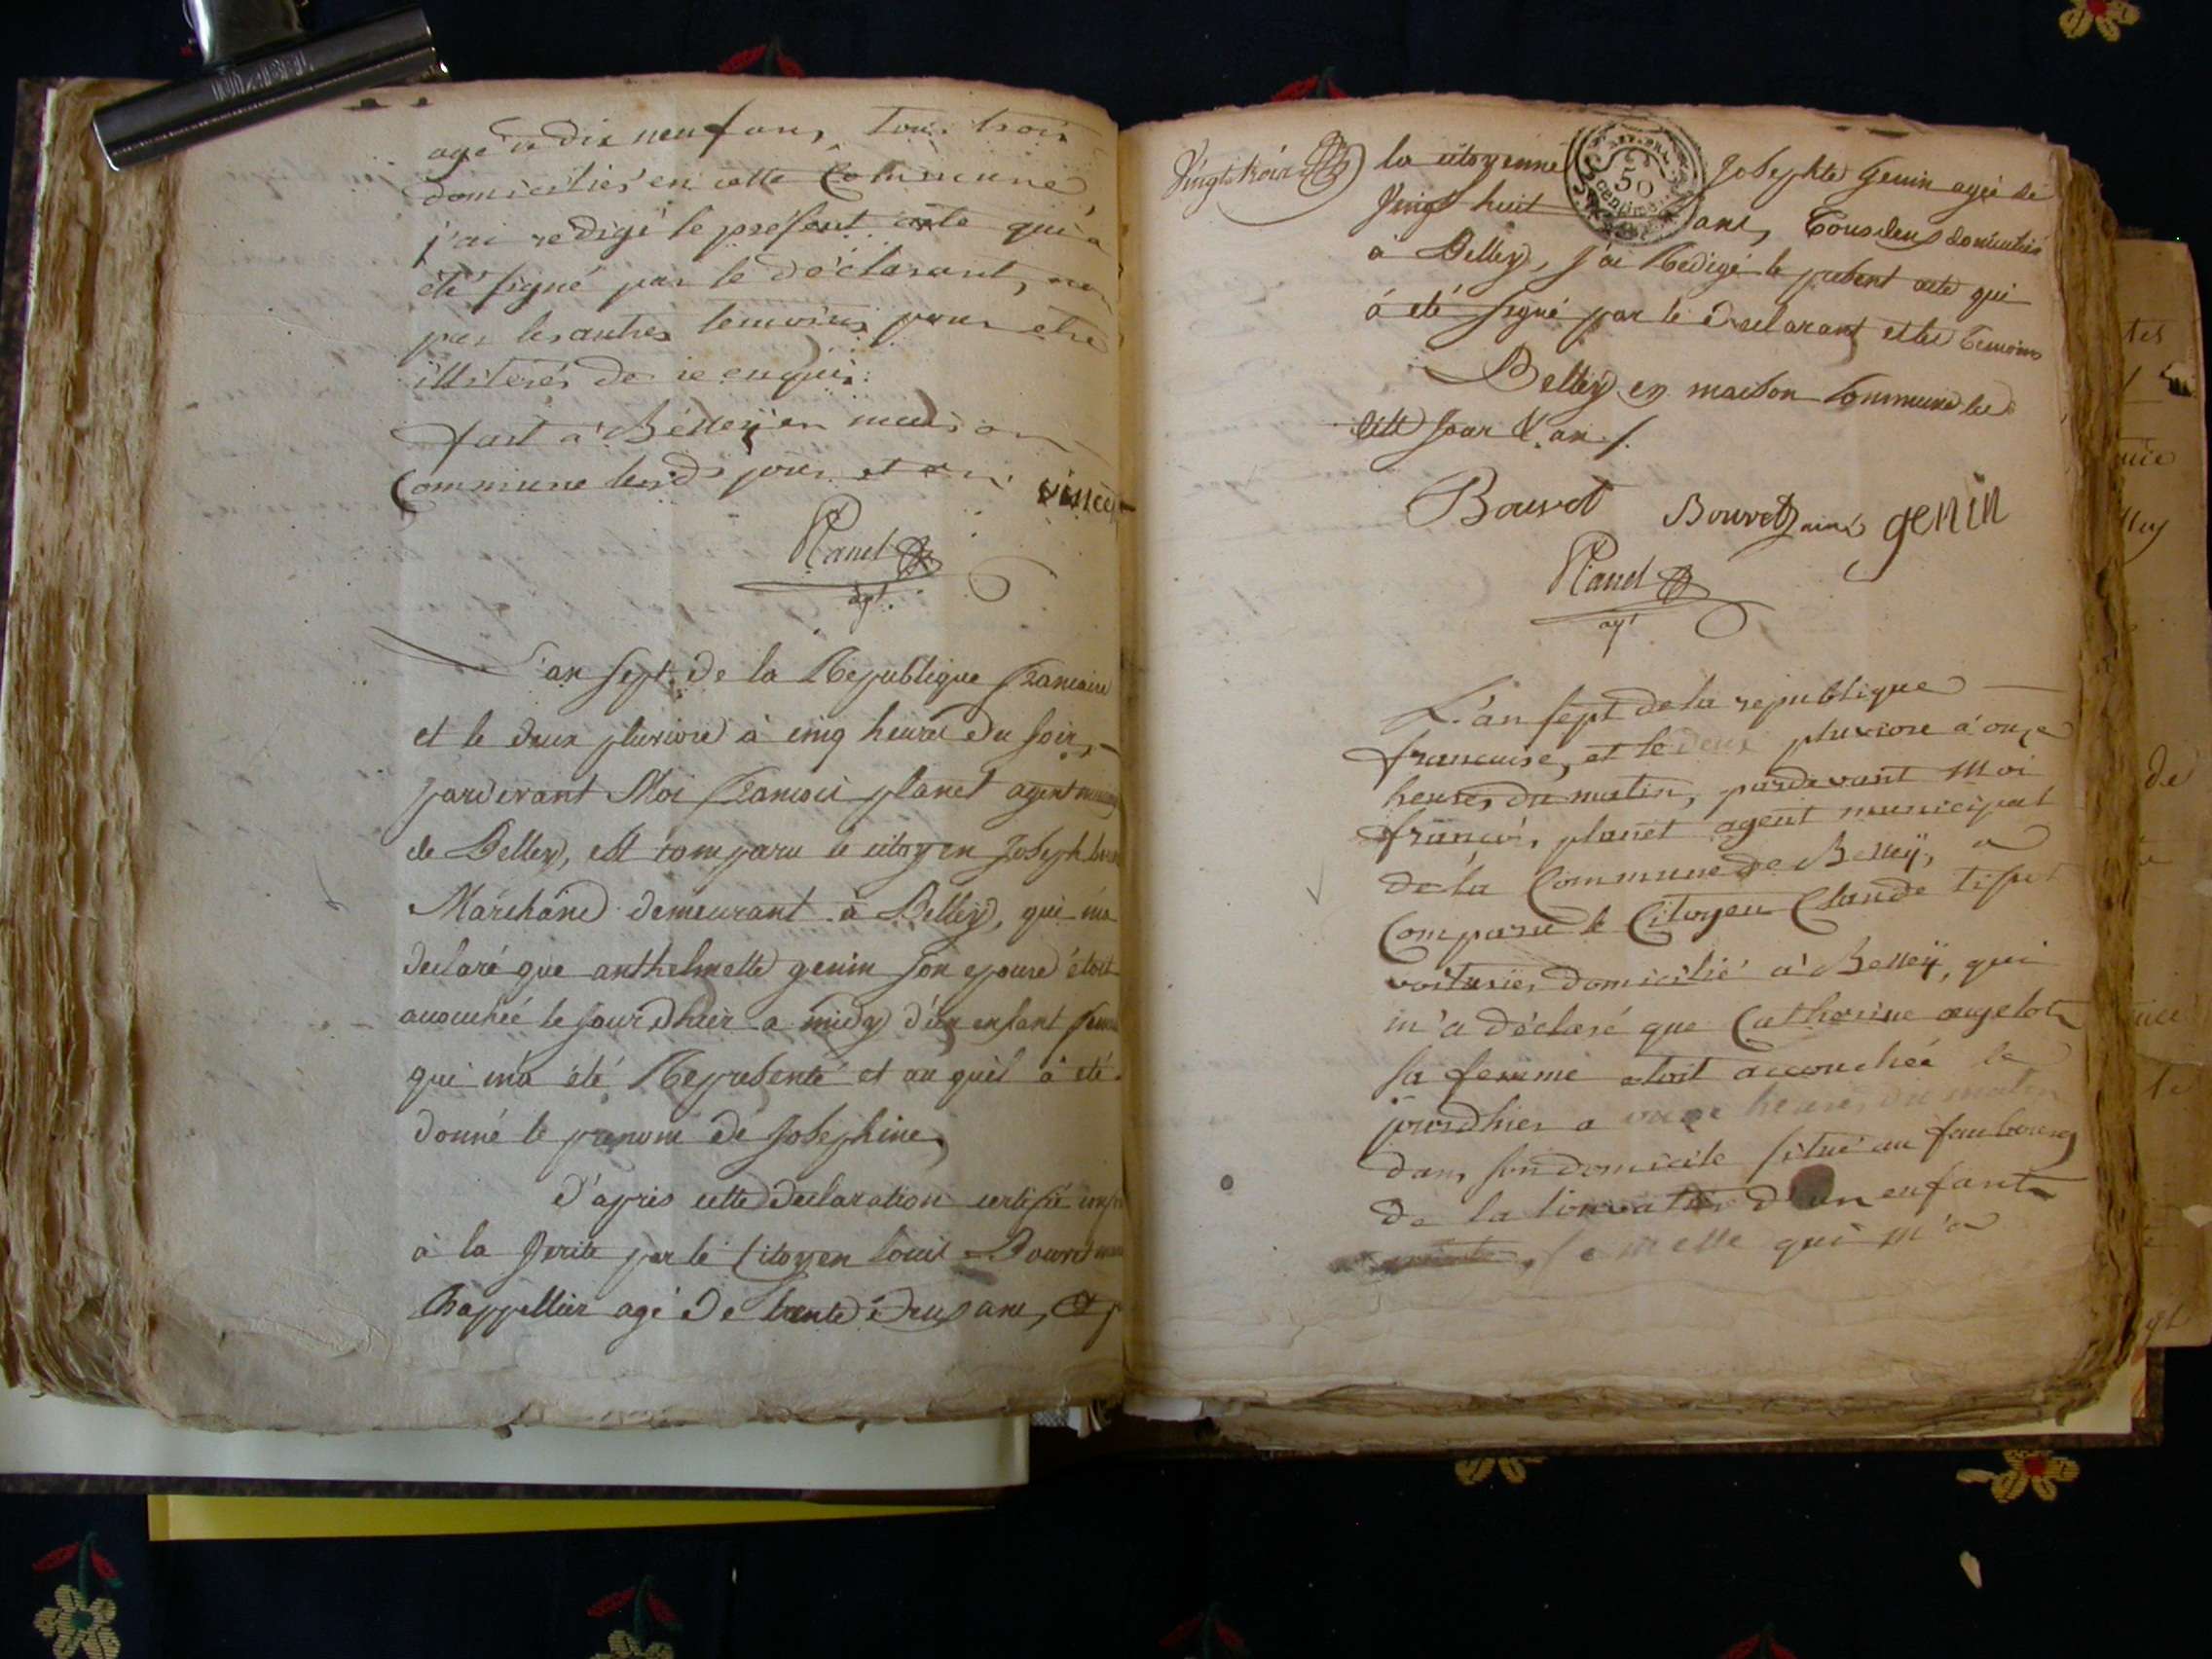 agé de dix neuf ans, tous trois
domicilies en cette Commune,
j'ai redigé le present acte qui a
été signé par le déclarant, non
par les autres temoins pour etre
illiterés de ce enquis.
fait à Belleÿ en maison
Commune lesds jour et an.
vincent
Planet
agt.
L'an sept de la Republique francaise
et le deux pluviose à cinq heures du soir,
pardevant Moi francois planet agent
de Belley, est comparu le citoyen Joseph
Marchand demeurant à Belley, qui ma
declaré que anthelmette genin son epouse étoit
accouchée le jour dhier a midy d'un enfant
qui m'a été Representé et au quèl à eté
donné le prenom de Josephine,
D'après cette declaration certifié
à la verite par le Citoyen Louis Bouvet
Chappellier agé de trente deux ans, Et
Vingt trois
la citoyenne Josephte Genin agée de
Vingt huit ans, Tous deux domiciliés
à Belley, j'ai Redigé le present acte qui
à eté signé par le declarant et les temoins
Belley en maison Commune les
dits jour & an /.
50
centimes
Bouvet Bouvet ainé genin
Planet
agt
L'an sept de la republique
francaise, et le deux pluviose à onze
heures du matin, pardevant Moi
francois planet agent municipal
de la Commune de Belleÿ, a
Comparu le Citoyen Claude
voiturier domicilié à Belleÿ, qui
m'a déclaré que Catherine
sa femme etoit accouchée le
jourdhier a heures du matin
dans son domicile situé au faubourg
de la d'un enfant
femelle qui m'a